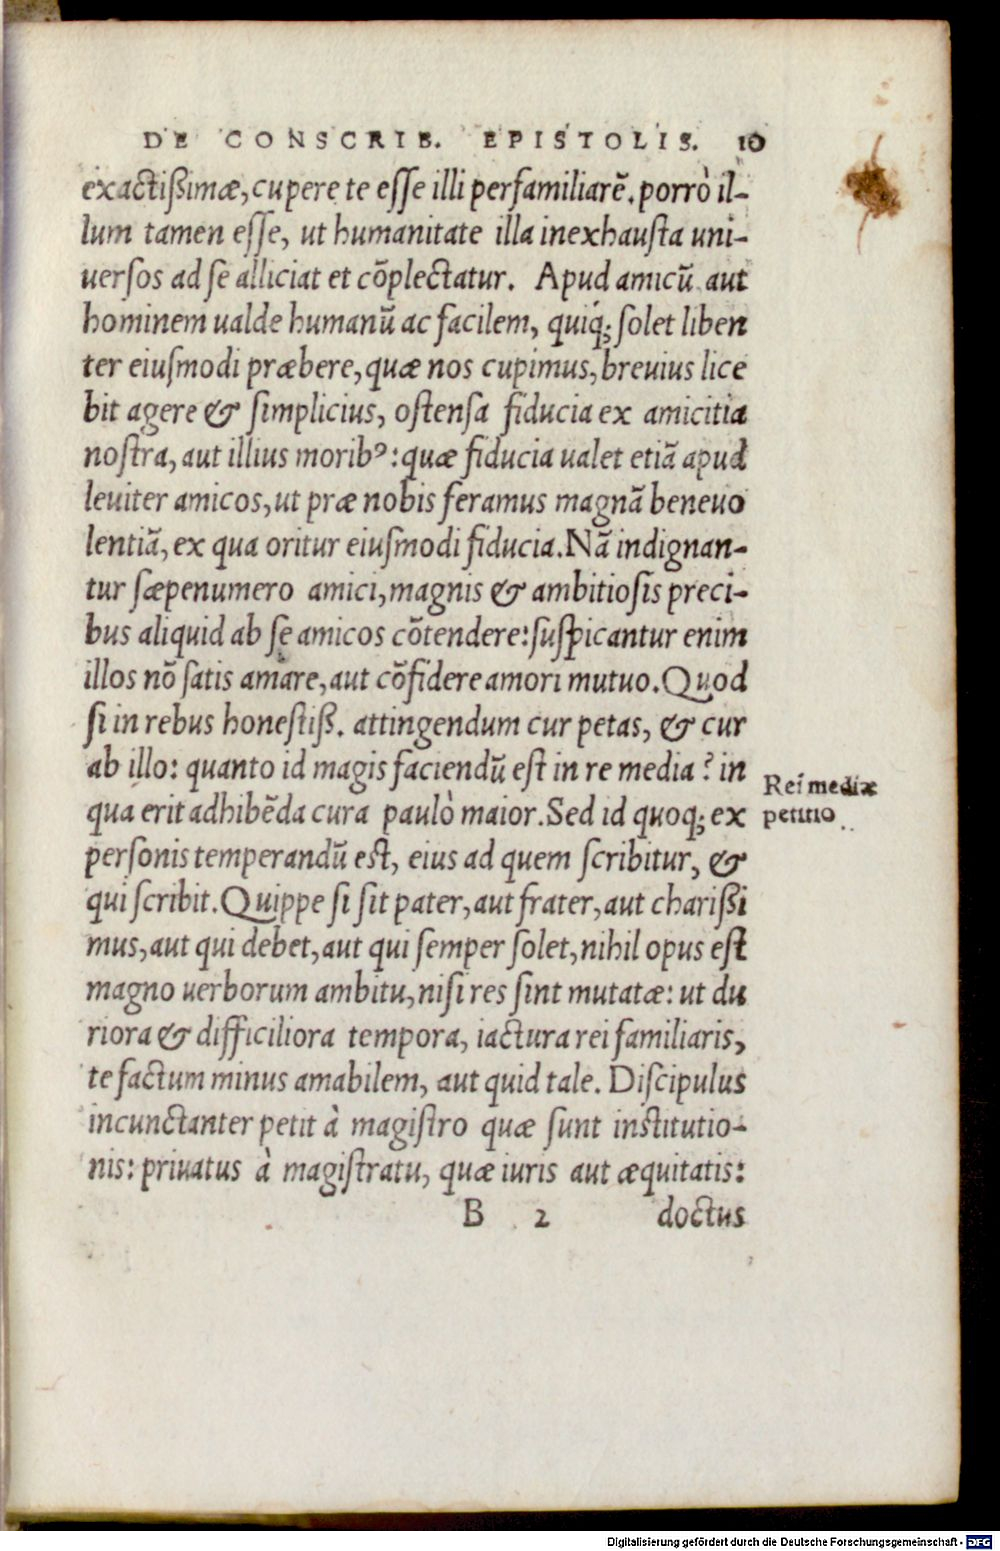 DE CONSCRIB. EPISTOLIS. 10
exactißimæ, cupere te eſſe illi perfamiliarē. porrò il-
lum tamen eſſe, ut humanitate illa inexhauſta uni-
uerſos ad ſe alliciat et cōplectatur. Apud amicū aut
hominem ualde humanū ac facilem, quiq́; ſolet liben
ter eiuſmodi præbere, quæ nos cupimus, breuius lice
bit agere & ſimplicius, oſtenſa fiducia ex amicitia
noſtra, aut illius moribꝰ: quæ fiducia ualet etiā apud
leuiter amicos, ut præ nobis feramus magnā beneuo
lentiā, ex qua oritur eiuſmodi fiducia. Nā indignan-
tur ſæpenumero amici, magnis & ambitioſis preci-
bus aliquid ab ſe amicos cōtendere: ſuſpicantur enim
illos nō ſatis amare, aut cōfidere amori mutuo. Quod
ſi in rebus honeſtiß. attingendum cur petas, & cur
ab illo: quanto id magis faciendū eſt in re media? in
Rei mediæ
petitio.
qua erit adhibēda cura paulò maior. Sed id quoq; ex
perſonis temperandū eſt, eius ad quem ſcribitur, &
qui ſcribit. Quippe ſi ſit pater, aut frater, aut charißi
mus, aut qui debet, aut qui ſemper ſolet, nihil opus eſt
magno uerborum ambitu, niſi res ſint mutatæ: ut du
riora & difficiliora tempora, iactura rei familiaris,
te factum minus amabilem, aut quid tale. Diſcipulus
incunctanter petit à magiſtro quæ ſunt inſtitutio-
nis: priuatus à magiſtratu, quæ iuris aut æquitatis:
B 2 doctus
Digitalisierung gefördert durch die Deutsche Forschungsgemeinschaft - DFG